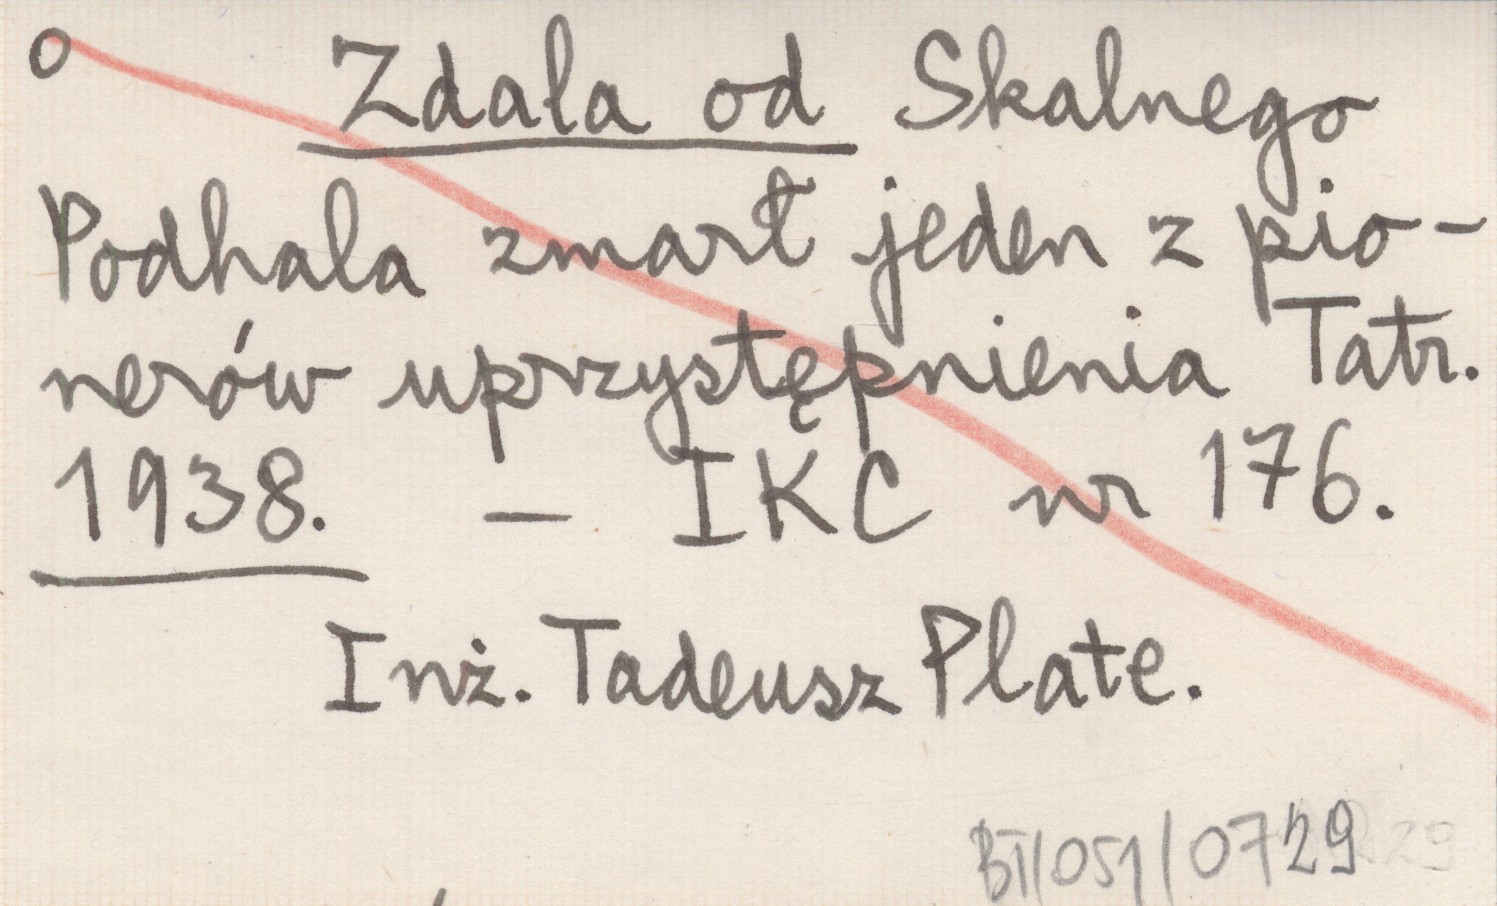 o Zdala od Skalnego
Podhala zmarł jeden z pio-
nerów uprzystępnienia Tatr.
1938. — IKC nr 176.
Inż. Tadeusz Plate.
BT/051/0729